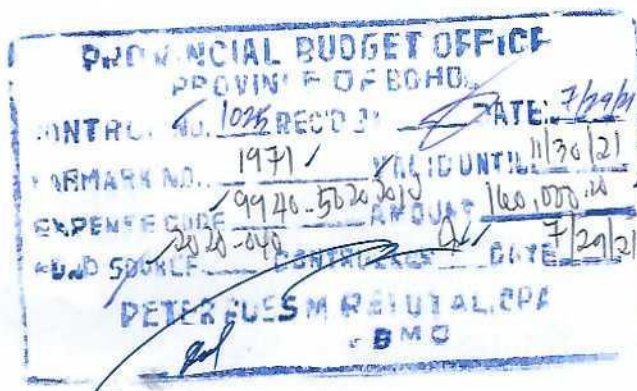 PROVINCIAL BUDGET OFFICE
PROVINCE OF BOHOL
CONTROL NO. 1025 REC'D BY DATE: 7/29/21
EARMARK NO. 1971 VALID UNTIL 11/30/21
EXPENSE CODE 9940-50202010 AMOUNT 160,000.00
FUND SOURCE 2020-040 DATE 7/29/21
PETER ROSS M. CPA
PBMO